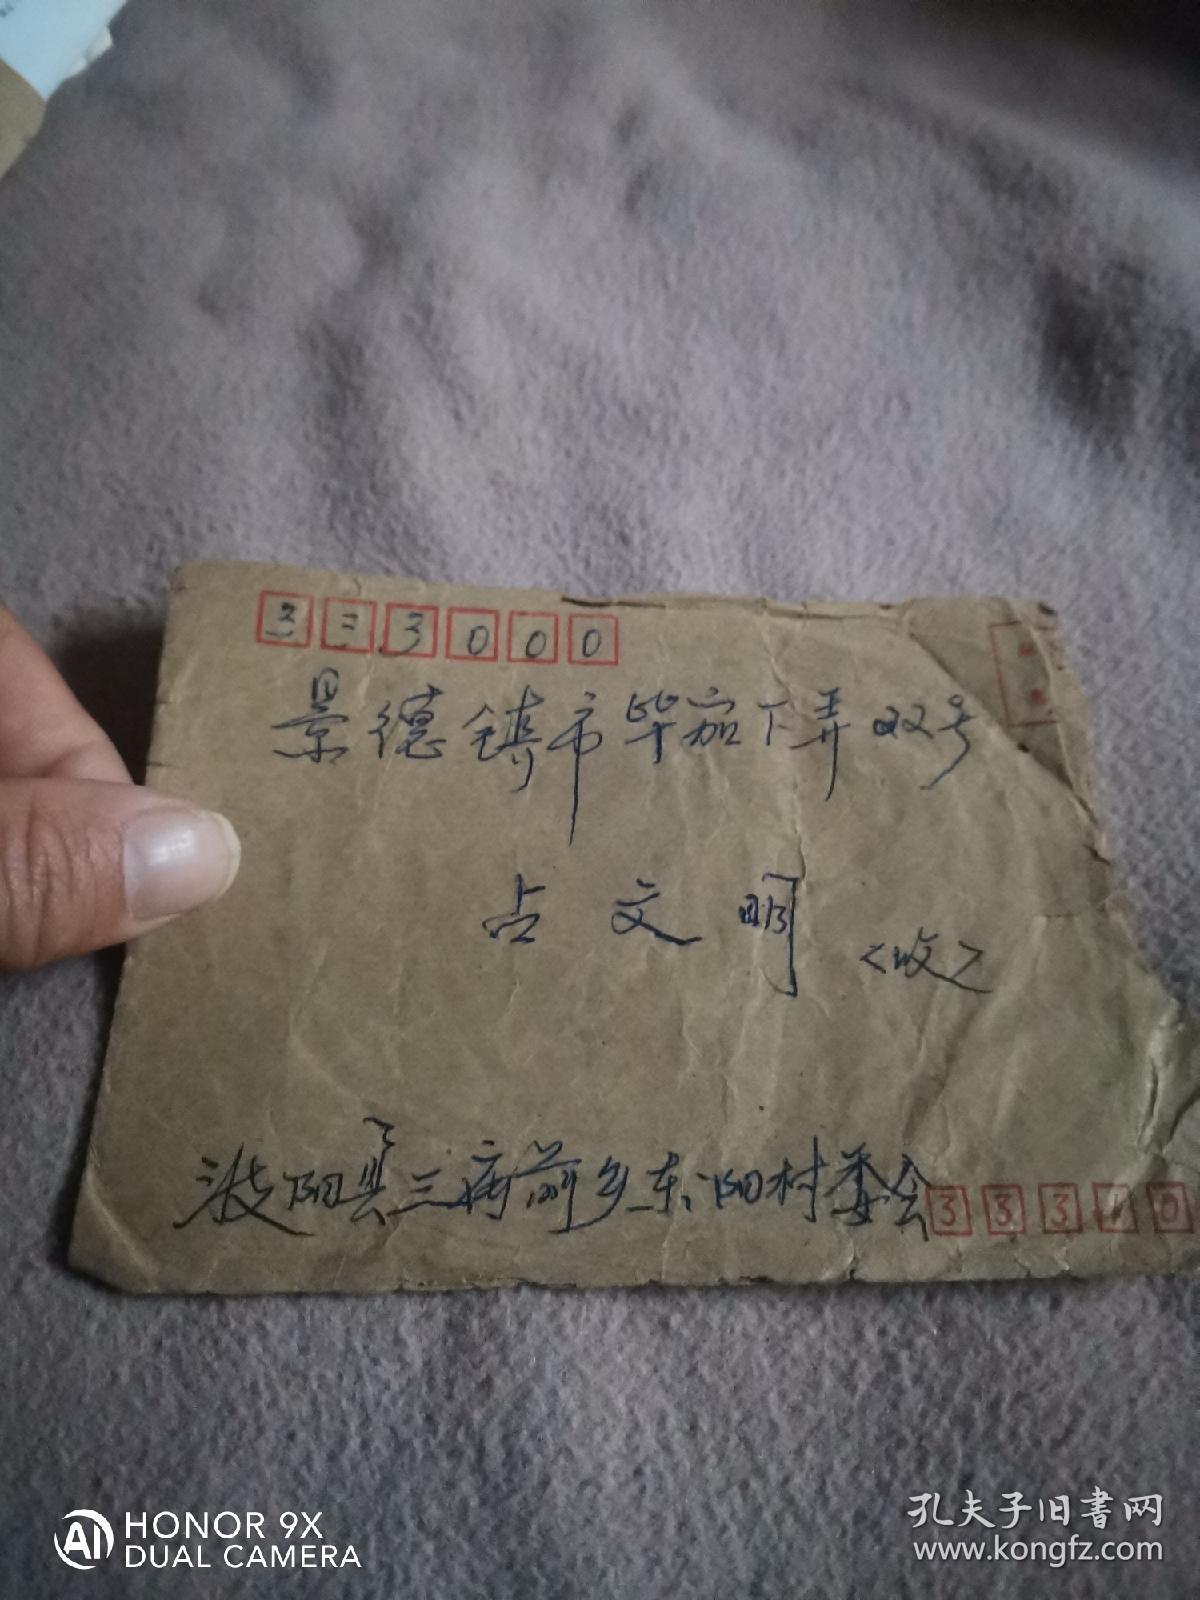 333000
景德镇市毕家下弄22号
占文明 <收>
波阳县三庙前乡东阳村委会
33310
HONOR 9X
DUAL CAMERA
孔夫子旧書网
www.kongfz.com